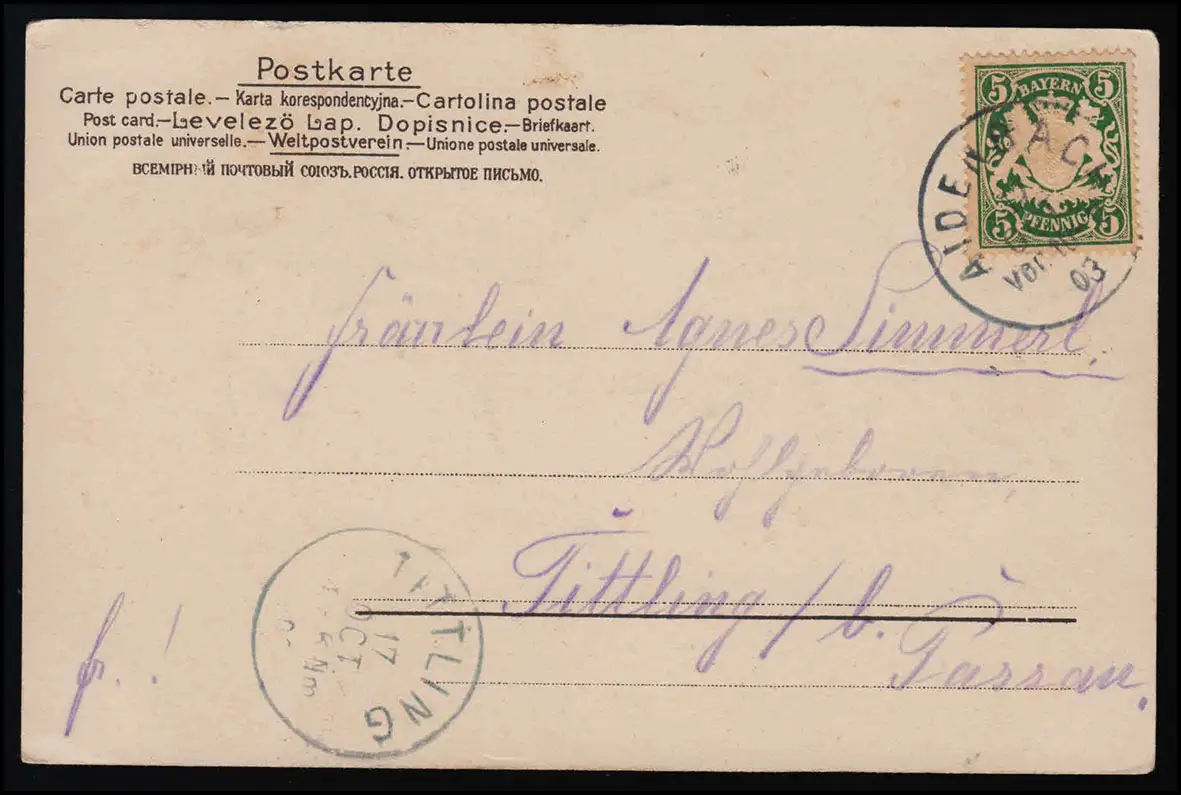 Postkarte
Carte postale.— Karta korespondencyjna.—Cartolina postale
Post card.—Levelezö Lap. Dopisnice.—Briefkaart.
Union postale universelle.—Weltpostverein.—Unione postale universale.
ВСЕМІРНЫЙ ПОЧТОВЫЙ СОЮЗЪ.РОССІЯ. ОТКРЫТОЕ ПИСЬМО.
5 BAYERN 5
5 PFENNIG 5
AIDENBACH
Vor.
03
Fräulein Agnes Simmerl.
Wohlgeboren,
Tittling / b.
Passau.
fr. !
TITTLING
17
OCT
Nm